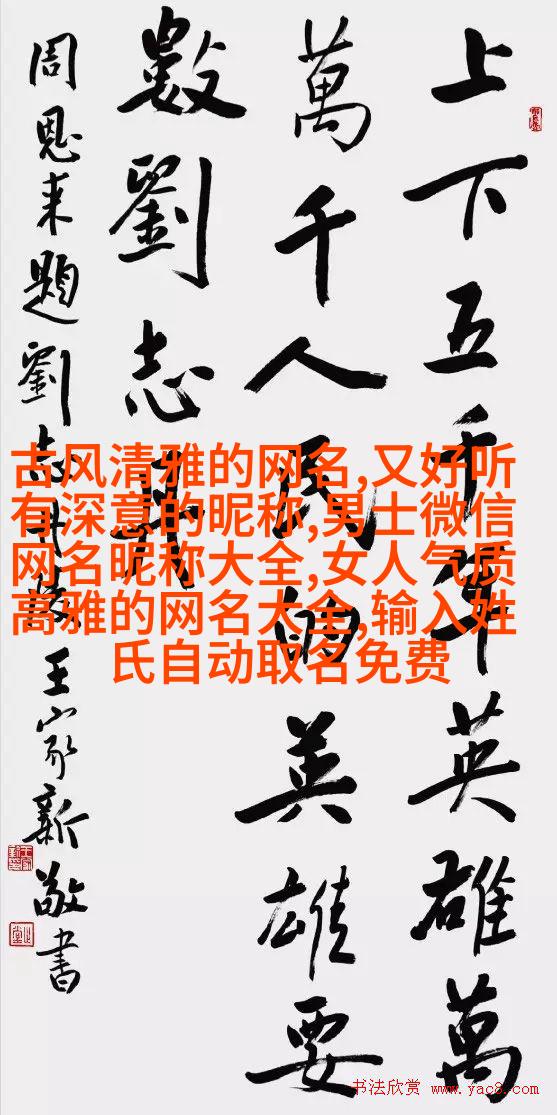 上下五千年英雄萬
萬千人民的英雄要
數劉志丹
周恩来題劉志丹句王家新敬書
古风清雅的网名,又好听
有深意的昵称,男士微信
网名昵称大全,女人气质
高雅的网名大全,输入姓
氏自动取名免费
书法欣赏 www.yac8.com